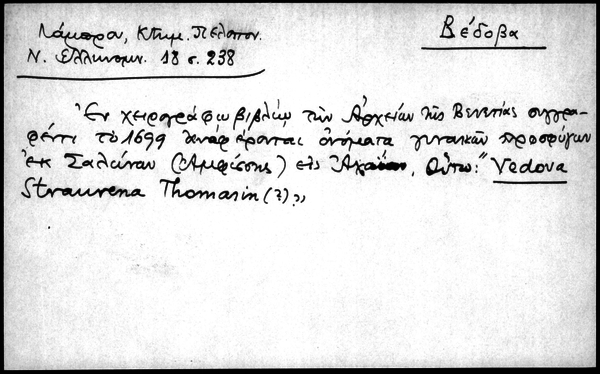 Λάμπρου, Κτημ. Πελοπον.
Ν. Ελληνομν. 18 σ. 238
Βέδοβα
Ἐν χειρογράφῳ βιβλίῳ τῶν Ἀρχείων τῆς Βενετίας συγγρα-
φέντι τὸ 1699 ἀναφέρονται ὀνόματα γυναικῶν προσφύγων
ἐκ Σαλώνων (Ἀμφίσσης) εἰς Ἀχαΐαν, οὕτω: "Vedova
Straurena Thomasin (?)»